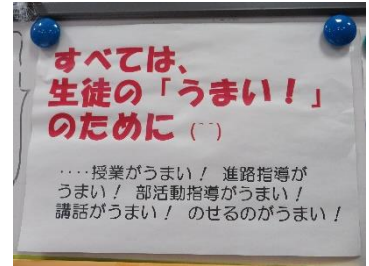 すべては、
生徒の「うまい！」
のために（^^）
‥‥授業がうまい！ 進路指導が
うまい！ 部活動指導がうまい！
講話がうまい！ のせるのがうまい！